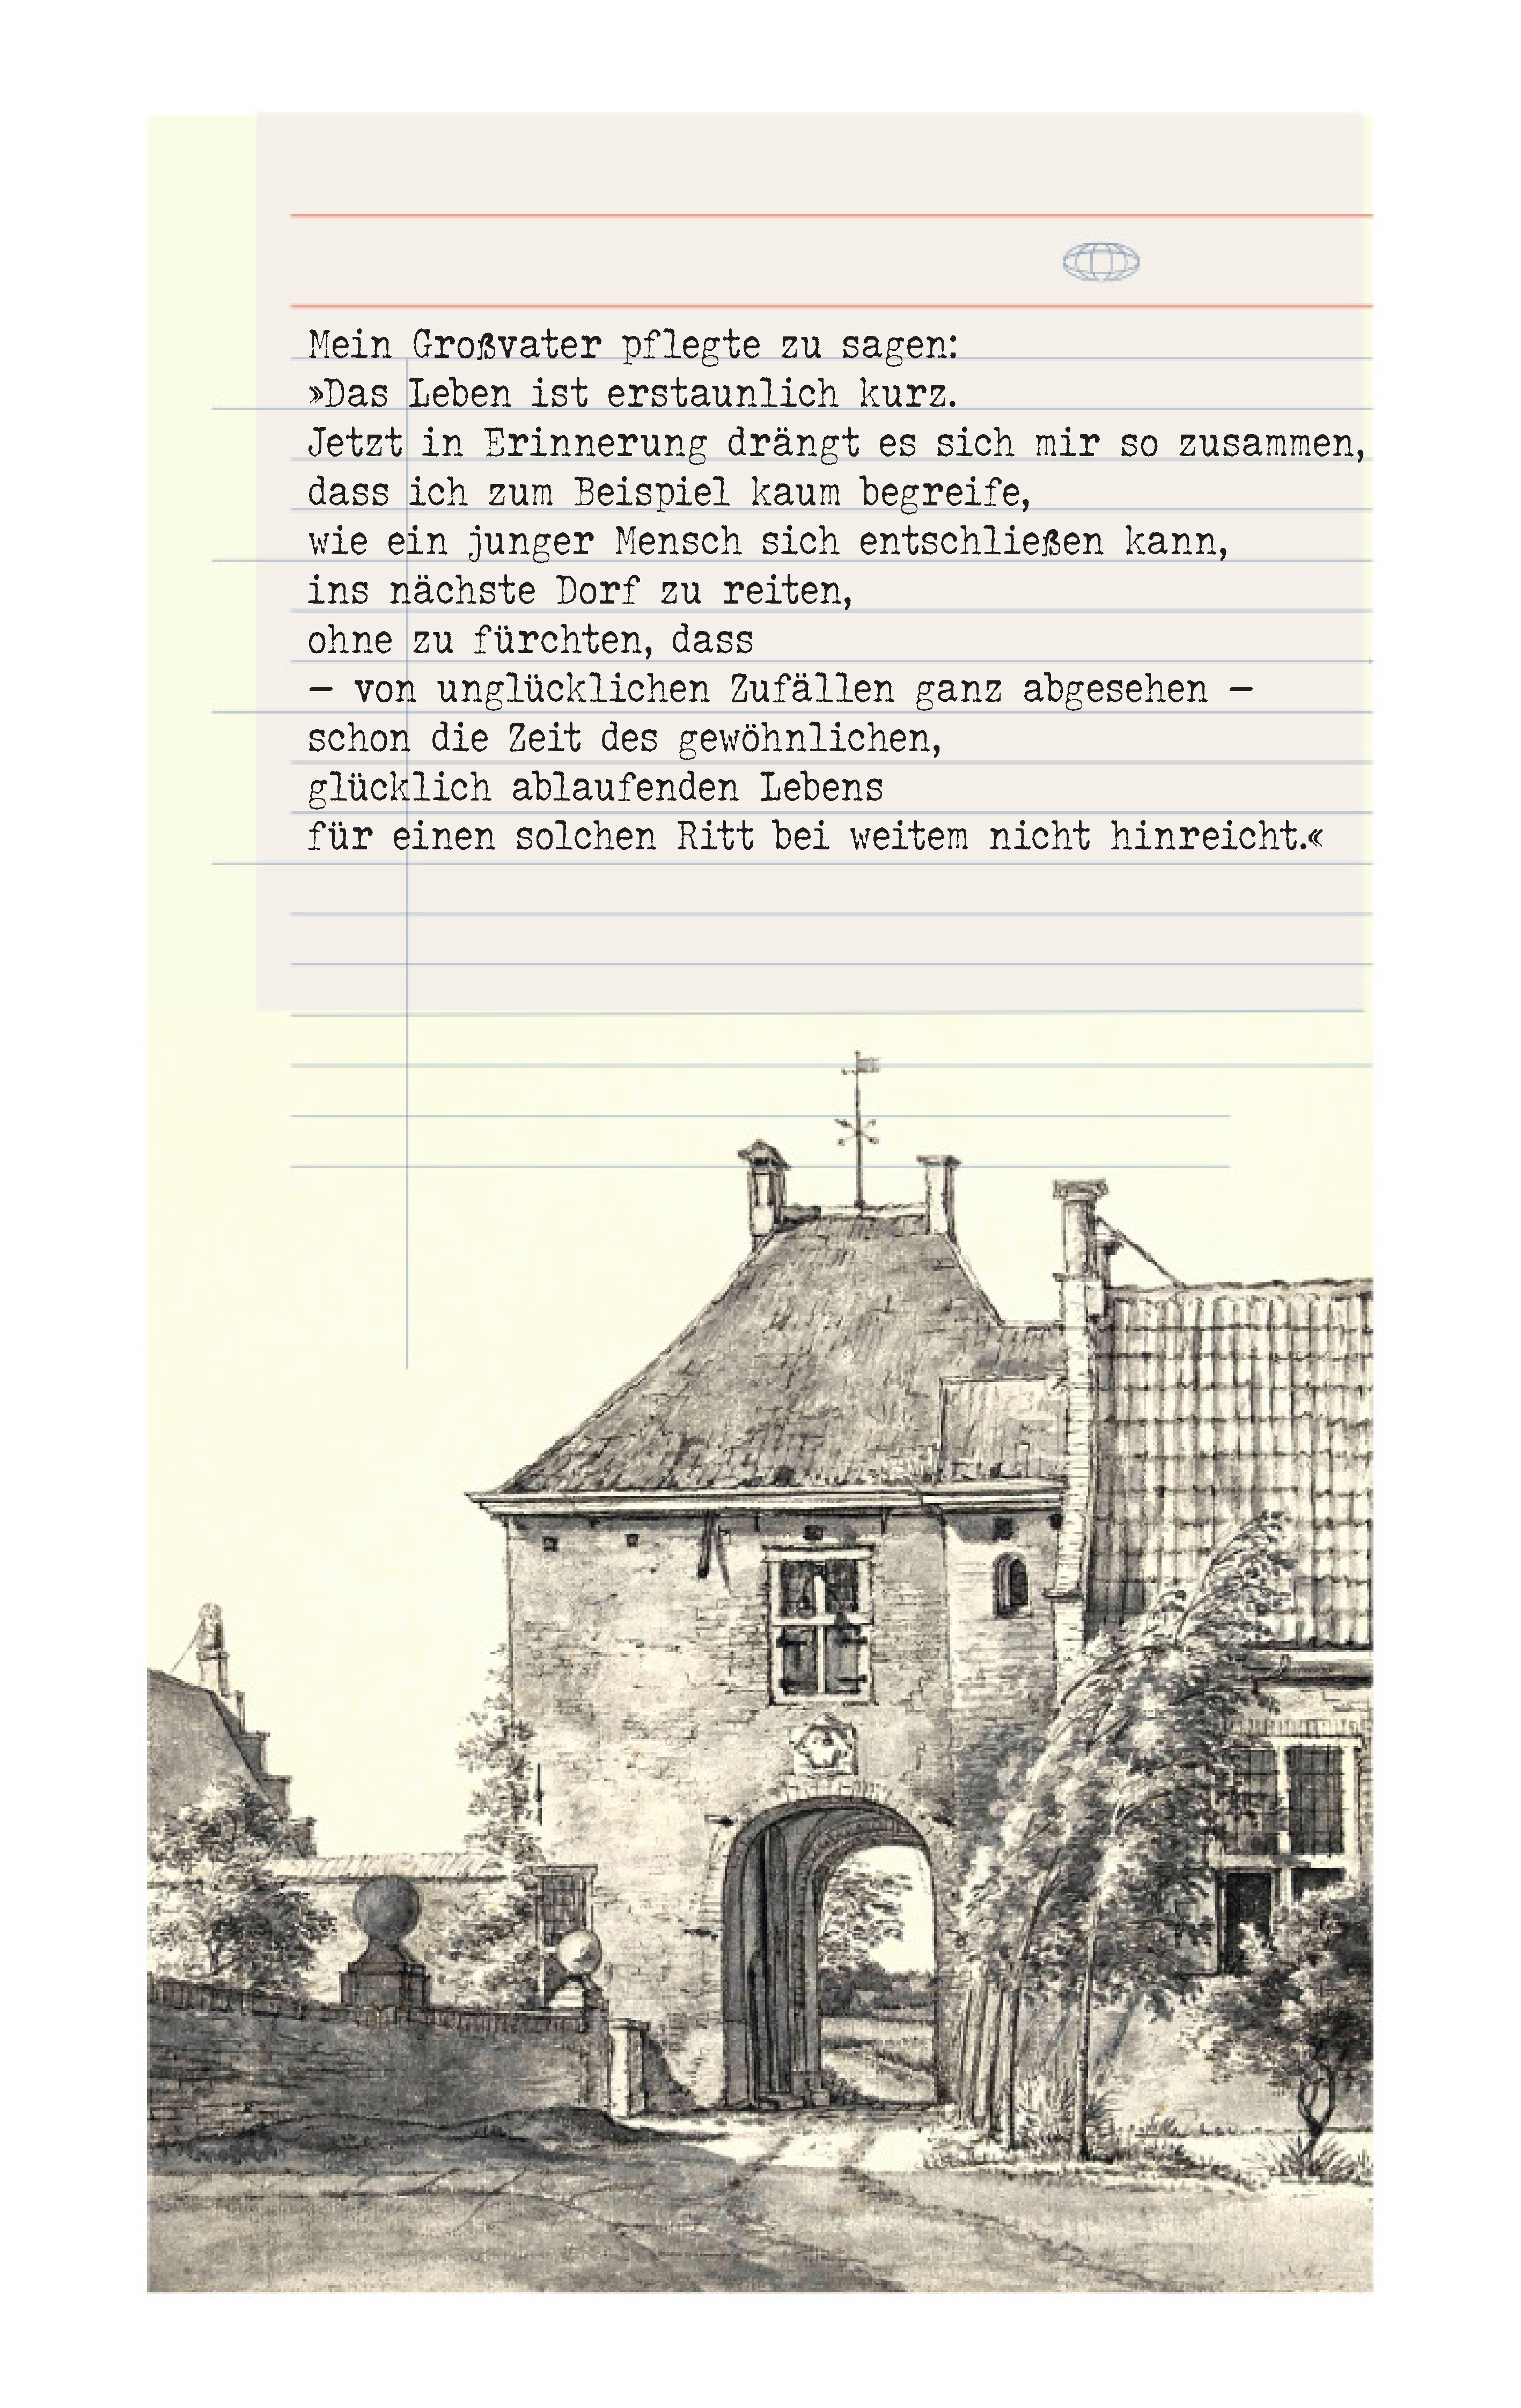 Mein Großvater pflegte zu sagen:
»Das Leben ist erstaunlich kurz.
Jetzt in Erinnerung drängt es sich mir so zusammen,
dass ich zum Beispiel kaum begreife,
wie ein junger Mensch sich entschließen kann,
ins nächste Dorf zu reiten,
ohne zu fürchten, dass
— von unglücklichen Zufällen ganz abgesehen —
schon die Zeit des gewöhnlichen,
glücklich ablaufenden Lebens
für einen solchen Ritt bei weitem nicht hinreicht.«